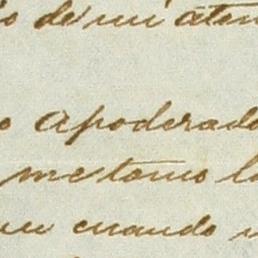 o de mi aten
o apoderado
me tomo l
cuando